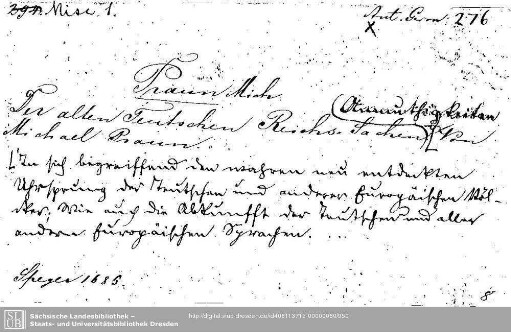 Misc. 1.
Ant. Gem. 276
X
Praun, Mich.
Der alten Teutschen Reichs-Sachen (Anmuthigkeiten) von
Michael Praun.
In sich begreiffend den wahren neu entdeckten
Uhrsprung der Teutschen und anderer Europäischen Völ-
cker, Wie auch die Abkunfft der Teutschen und aller
andern Europäischen Sprachen. . . .
Speyer 1685.
8°
Sächsische Landesbibliothek –
Staats- und Universitätsbibliothek Dresden